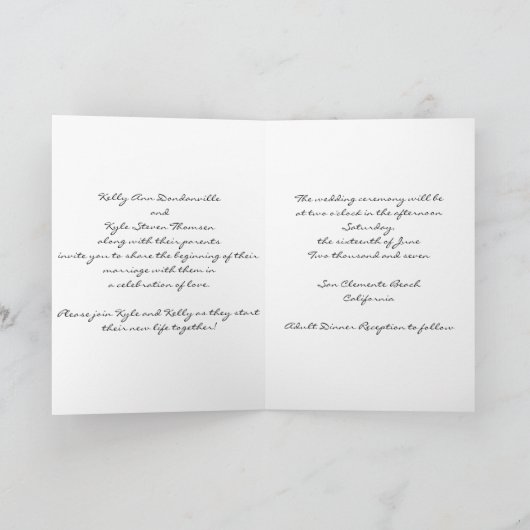 Kelly Ann Dondanville
and
Kyle Steven Thomsen
along with their parents
invite you to share the beginning of their
marriage with them in
a celebration of love.
Please join Kyle and Kelly as they start
their new life together!
The wedding ceremony will be
at two o'clock in the afternoon
Saturday,
the sixteenth of June
Two thousand and seven
San Clemente Beach
California
Adult Dinner Reception to follow